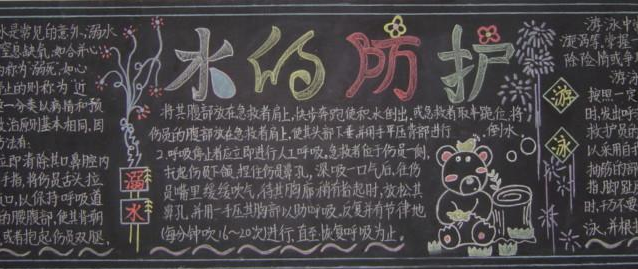 水的防护
水是常见的意外,溺水
窒息缺氧,如合并心
称为"溺死",如心
止的则称为 近
分类以病情和预
救治原则基本相同,因
方法有:
立即清除其口鼻腔内
手指,将伤员舌头拉
口,以保持呼吸道
的腰腹部,使其背朝
或者抱起伤员双腿,
溺
水
将其腹部放在急救者肩上,快步奔跑使积水倒出,或急救者取半跪位,将
伤员的腹部放在急救者肩上,使其头部下垂,并用手平压背部进行 倒水。
2.呼吸停止者应立即进行人工呼吸,急救者位于伤员一侧,
托起伤员下颌,捏住伤员鼻孔,深吸一口气后,往伤
员嘴里缓缓吹气,待其胸廓稍有抬起时,放松其
鼻孔,并用一手压其胸部以助呼气,反复并有节律地
(每分钟吹16~20次)进行,直至恢复呼吸为止。
游
泳
游泳中
漩涡等,掌握
除险情或争
游泳
按照一
时,发出呼
救护员
以采用自
抽筋
指,脚趾
时,千万不要
泳,并根